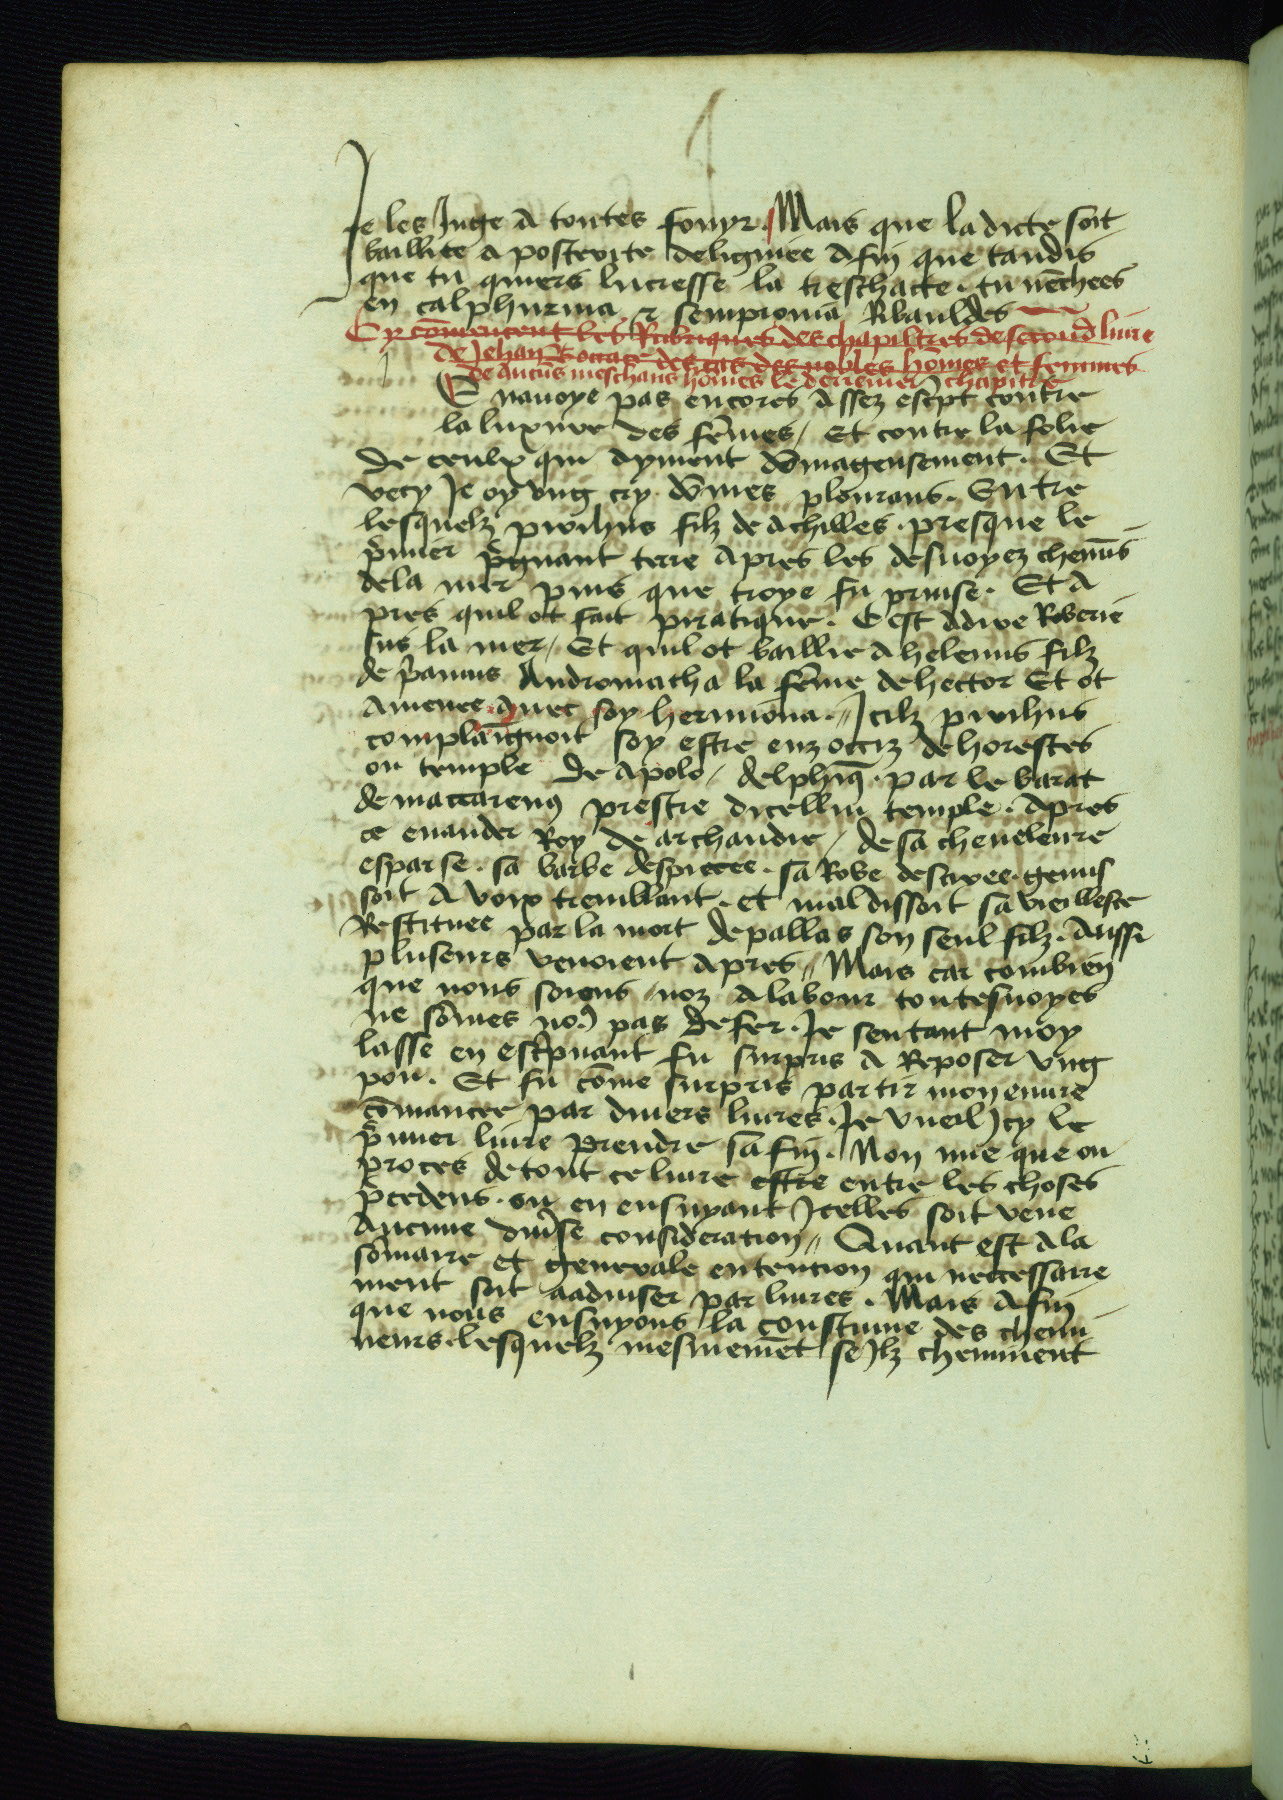 Je les Juge a toutes fouyr. Mais que ladicte soit
baillee a posterite deligniee Afin que tandis
que tu quiers lucresse la treschaste. tu nēchees
en calphurnia. & sempronia Ribauldes
Cy cōmencent les Rubriques des chapiltres de second liure
de Jehan Bocace des cas des nobles hōmes et femmes
de aucūs meschans hōmes le derrenier chapitre
E nauoye pas encores assez escpt contre
la luxure des fēmes / Et contre la folie
De ceulx qui dyment dōmageusement. Et
vecy Je oy vng cry. dōmes plourans. Entre
lesquelz pirrihus filz de Achilles. presque le
p̄mier p̄gnant terre apres les desuoyez chemīs
dela mer puis que troye fu prinse. Et A
pres quil ot fait piratique. Cest Adire Roberie
sus la mer / Et quil ot baillie a helenus filz
de p̄amus Andromacha la fēme de hector Et ot
Amenee auec soy hermiona. // Icilz pirrihus
complaīgnoit soy estre enz occiz de horestes
ou temple de Apolo / delphiq̄. par le barat
de maccareus prestre dicellui temple. Apres
ce euander Roy de archandie / de sa cheueleure
esparse. sa barbe despiecee. sa Robe desciree. gemis
soit A voix tremblant. et maldissoit sa vieillesce
Restituee par la mort de pallas son seul filz. Aussi
pluseurs venoient apres // Mais car combien
que nous soiens noz a labour toutesuoyes
ne sōmes no9 pas de fer. Je sentant moy
lasse en escp̄uant fu surpris a Reposer vng
pou. Et fu cōme surpris partir mon euure
cōmancee par diuers liures. Je vueil Jcy le
p̄mier liure prendre sa fin. Non mie que ou
proces de tout ce liure estre entre les choses
p̄cedens. ou en ensuyant Jcelles soit veue
Aucune diu̾se consideration // Quant est ala
sōmaire et generale entention qui neccessaire
ment soit aaduiser par liures. Mais Afin
que nous ensuyons la coustume des chemi
neurs. lesquelz mesmemēt se Jlz cheminent